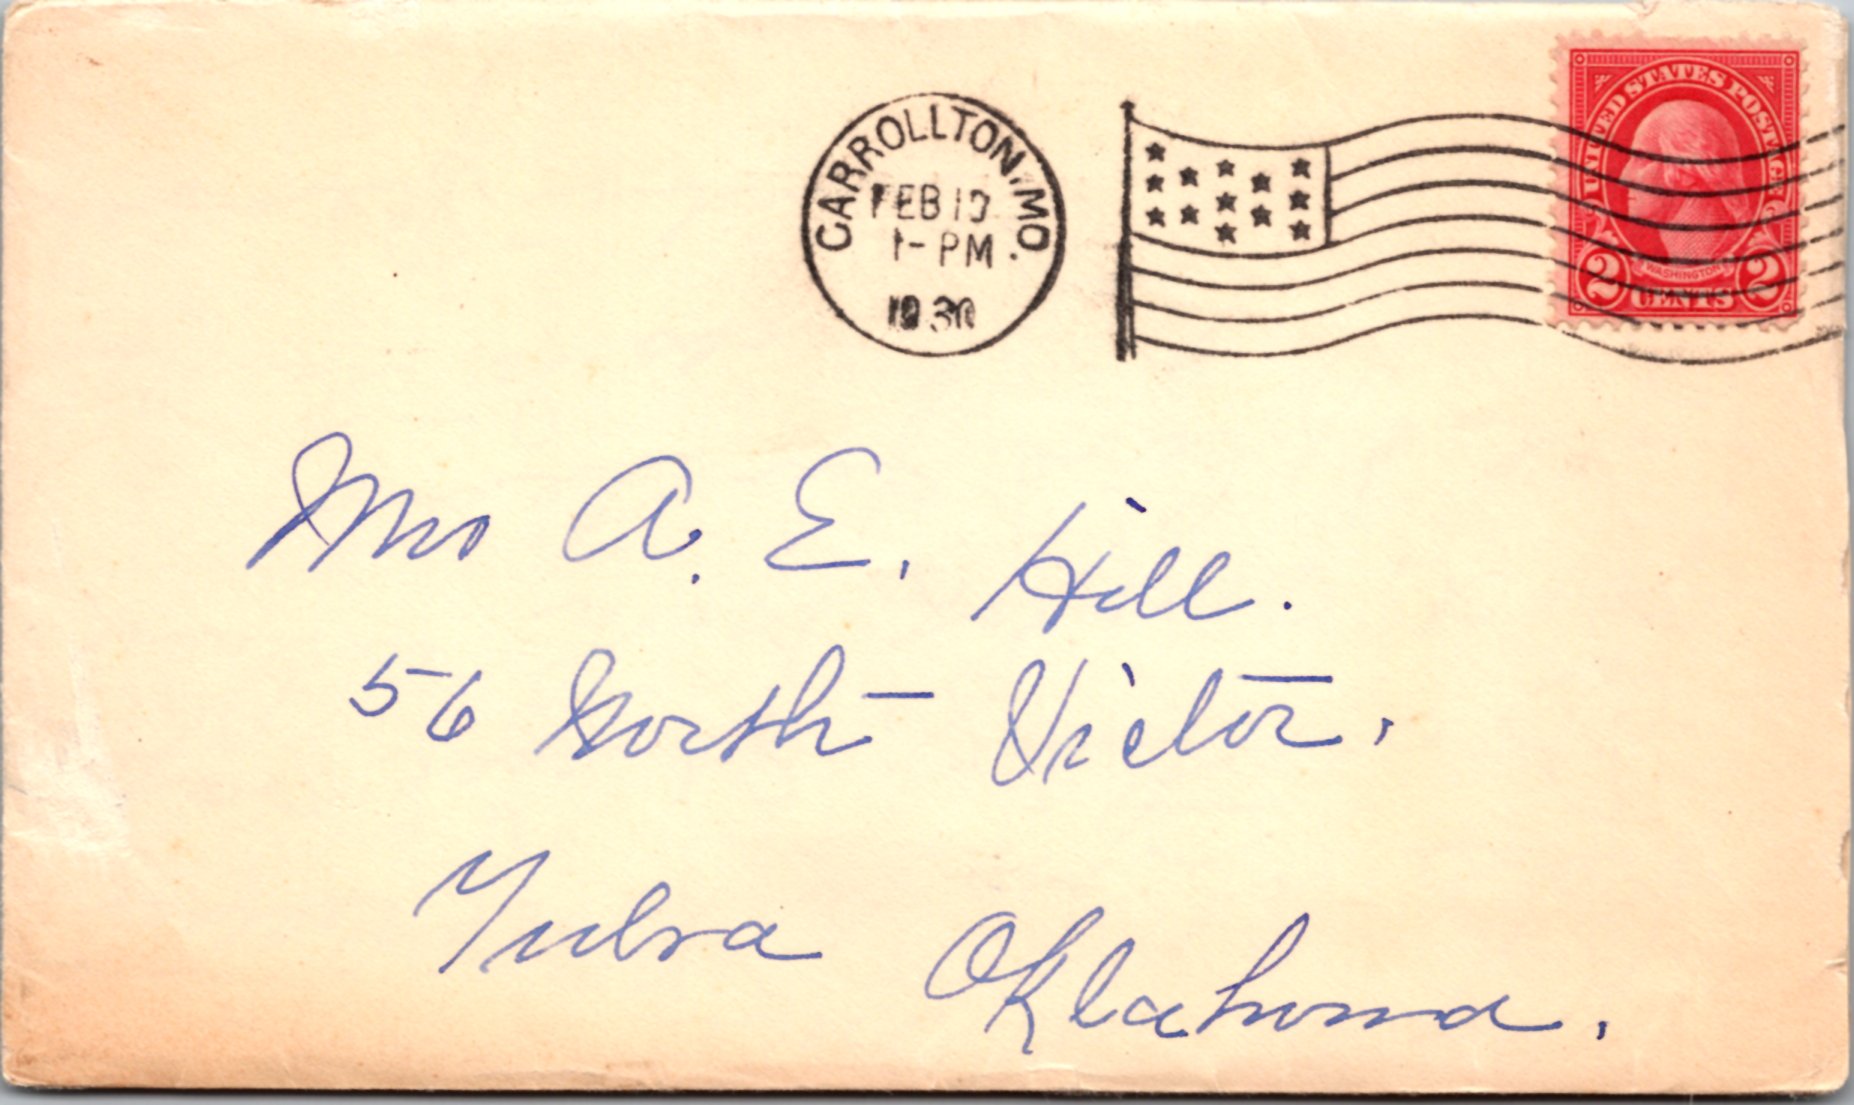 CARROLLTON, MO.
FEB 10
1-PM
1930
UNITED STATES POSTAGE
WASHINGTON
2 CENTS 2
Mrs A. E. Hill.
56 North Victor.
Tulsa Oklahoma.